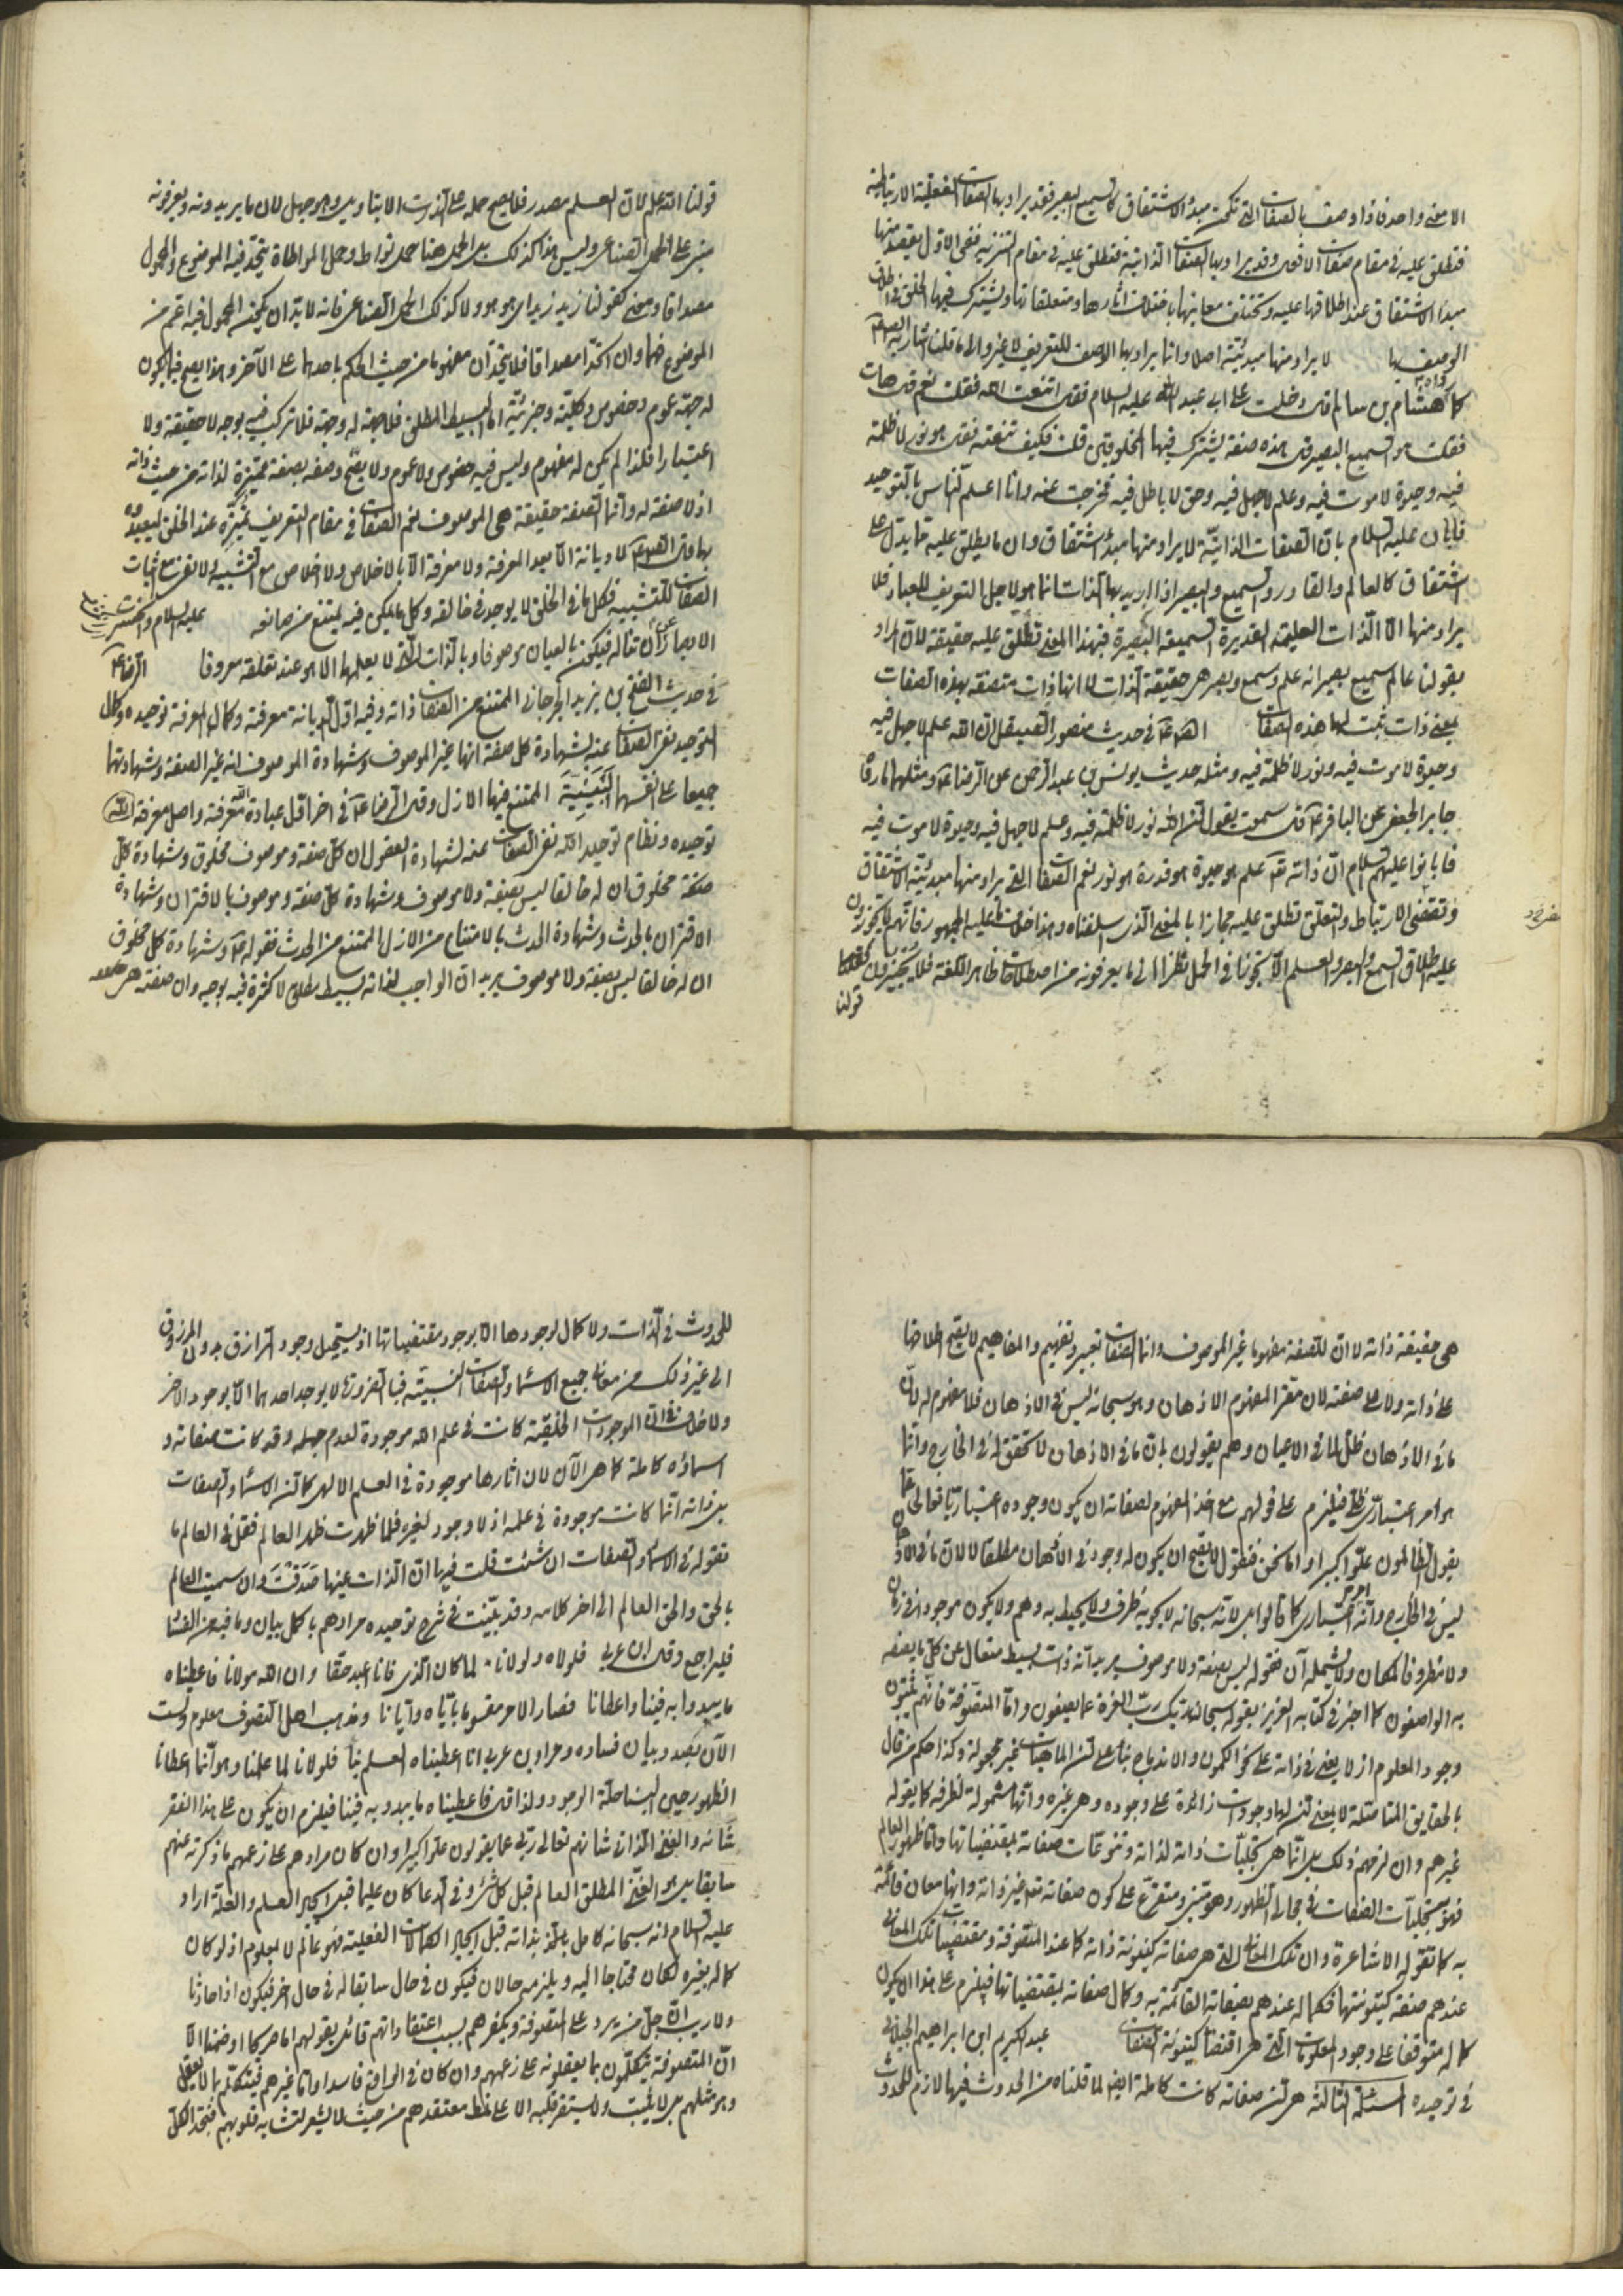 الا معنى واحد فاذا وصف بالصفات التى تكون مبدأ الاشتقاق كالسميع البصير فقد يراد بها الصفات الفعلية الارتباطية
فتطلق عليه فى مقام صفات الافعال وقد يراد بها الصفات الذاتية فتطلق عليه فى مقام التنزيه ففى الاول يقصد منها
مبدأ الاشتقاق عند اطلاقها عليه وتختلف معانيها باختلاف اثارها ومتعلقاتها ويشترك فيها الخلق فى اطلاق
الوصف بها لا يراد منها مبدئية اصلا وانما يراد بها الوصف للتعريف لا غير والى ما قلنا اشار
كما رواه هشام بن سالم قال دخلت على ابى عبد الله عليه السلام فقال اتنعت الله فقلت نعم قال هات
فقلت هو السميع البصير قال هذه صفة يشترك فيها المخلوقين قلت فكيف تنعته فقال هو نور لا ظلمة
فيه وحيوة لا موت فيه وعلم لا جهل فيه وحق لا باطل فيه فخرجت من عنده وانا اعلم الناس بالتوحيد
فابان عليه السلام بان الصفات الذاتية لا يراد منها مبدأ اشتقاق وان ما يطلق عليه مما يدل على
اشتقاق كالعالم والقادر والسميع والبصير اذا اريد بها الذات انما هو لاجل التعريف للعباد فلا
يراد منها الا الذات العليمة القديرة السميعة البصيرة فبهذا المعنى تطلق عليه حقيقة لان المراد
بقولنا عالم سميع بصير انه علم وسمع وبصر هى حقيقة الذات لا انها ذات متصفة بهذه الصفات
بمعنى ذات ثبت لها هذه الصفات فى حديث منصور الصيقل ان الله علم لا جهل فيه
وحيوة لا موت فيه ونور لا ظلمة فيه ومثله حديث يونس بن عبد الرحمن عن الرضا ع ومثلهما ما رواه
جابر الجعفى عن الباقر ع قال سمعته يقول ان الله نور لا ظلمة فيه وعلم لا جهل فيه وحيوة لا موت فيه
فابانوا عليهم السلام ان ذاته علم هو حيوة هو قدرة هو نور نعم الصفات التى يراد منها مبدئية الاشتقاق
وتقتضى الارتباط والتعلق تطلق عليه مجازا بالمعنى الذى سلفناه وهذا خلاف ما عليه الجمهور فانهم لا يجوزون
عليه اطلاق السمع والبصر والعلم الا تجوزا فى الحمل نظرا الى ما يعرفونه من اصطلاحات ظاهر اللغة فلا يجيزون
قولنا
قولنا الله علم لان العلم مصدر فلا يصح حمله على الذات الا بتاويل وهو جهل لان ما يريدونه ويعرفونه
مبنى على الحمل الصناعى وليس هذا كذلك بل الحمل هنا حمل تواطؤ وحمل المواطاة يتحد فيه الموضوع والمحمول
مصداقا ومعنى كقولنا زيد زيد اى هو هو ولا كذلك الحمل الصناعى فانه لا بد ان يكون المحمول فيه اعم من
الموضوع مفهوما وان اتحدا مصداقا فلا يتحدان مفهوما من حيث الحكم باحدهما على الآخر وهذا يصح فيما يكون
له جهة عموم وخصوص وكلية وجزئية اما البسيط المطلق فلا جهة له وجهة فلا تركيب فيه بوجه لا حقيقة ولا
اعتبارا فلذا لم يكن له مفهوم وليس فيه خصوص ولا عموم ولا يصح وصفه بصفة مميزة لذاته من حيث ذاته
اذ لا صفة له وانما الصفة حقيقة هى الموصوف نعم الصفات فى مقام التعريف مميزة عند الخلق ليعبدوه
بها قال لا ديانة الا بعد المعرفة ولا معرفة الا بالاخلاص ولا اخلاص مع التشبيه ولا نفى مع اثبات
الصفات للتشبيه فكل ما فى الخلق لا يوجد فى خالقه وكل ما يمكن فيه يمتنع من صانعه عليه السلام
الابصار ان تناله فيكون بالعيان موصوفا وبالذات التى لا يعلمها الا هو عند خلقه معروفا
فى حديث الفتح بن يزيد الجرجانى الممتنع من الصفات ذاته وفيه اول الديانة معرفته وكمال المعرفة توحيده وكمال
التوحيد نفى الصفات عنه بشهادة كل صفة انها غير الموصوف وشهادة الموصوف انه غير الصفة وشهادتهما
جميعا على انفسهما الممتنع منها الازل وقال الرضا ع فى اخر اول عبادة الله معرفته واصل معرفة الله
توحيده ونظام توحيد الله نفى الصفات عنه لشهادة العقول ان كل صفة وموصوف مخلوق وشهادة كل
مخلوق ان له خالقا ليس بصفة ولا موصوف وشهادة كل صفة وموصوف بالاقتران وشهادة
الاقتران بالحدث وشهادة الحدث بالامتناع من الازل الممتنع من الحدث فقوله ع وشهادة كل مخلوق
ان له خالقا ليس بصفة ولا موصوف يريد ان الواجب لذاته بسيط مطلق لا كثرة فيه بوجه وان صفته
هى حقيقة ذاته لا ان للصفة مفهوما غير الموصوف وانما الصفات تعبير وتفهيم والمفاهيم لا يصح اطلاقها
على ذاته ولا على صفته لان مقر المفهوم الاذهان وهو سبحانه ليس فى الاذهان فلا مفهوم له لان
ما فى الاذهان ظل لما فى الاعيان وهم يقولون بان ما فى الاذهان لا تحقق له فى الخارج وانما
هو امر اعتبارى ظلى فيلزم على قولهم مع اخذ المفهوم لصفاته ان يكون وجوده اعتباريا تعالى عما
يقول الظالمون علوا كبيرا واما نحن فنقول لا يصح ان يكون له وجود فى الاذهان مطلقا لا لان ما فى الاذهان
ليس فى الخارج وانه امر اعتبارى كما قالوا بل لانه سبحانه لا يحويه ظرف ولا يحيط به وهم ولا يكون موجودا فى زمان
ولا مظروفا لمكان ولا يشمله آن فقوله ليس بصفة ولا موصوف يريد انه ذات بسيط متعال عن كل ما يصفه
به الواصفون كما اخبر فى كتابه العزيز بقوله سبحان ربك رب العزة عما يصفون واما المتصوفة فانهم يثبتون
وجود المعلوم ازلا يعنى فى ذاته على نحو الكمون والاندماج بناء على ان الماهيات غير مجعولة وكذا حكم من قال
بالحقايق المتاصلة لا بمعنى ان لها وجودات زائدة على وجوده وهى غيره وانها مشمولة لظرفه كما يقوله
غيرهم وان لزمهم ذلك بل انها هى تجليات ذاته لذاته وتنوعات صفاته بمقتضياتها واما ظهور العالم
فهو تجليات الصفات فى مجارى الظهور وهو مبنى ومتفرع على كون صفاته تعالى غير ذاته وانها معان قائمة
به كما تقوله الاشاعرة وان تلك المعانى التى هى صفاته كينونة ذاته كما عند المتصوفة ومقتضيات تلك المعانى
عندهم صفة كينونتها فكماله عندهم بصفاته القائمة به وكمال صفاته بمقتضياتها فيلزم على هذا ان يكون
كماله متوقفا على وجود المعلومات التى هى اقتضاء كينونة الصفات عبد الكريم ابن ابراهيم الجيلانى
فى توحيده المسئلة الثالثة هى ان صفاته كانت كاملة ايضا لما قلناه من الحدوث فيها لازم للحدوث
للحدوث فى الذات ولا كمال لوجودها الا بوجود مقتضياتها اذ يستحيل وجود الرازق بدون المرزوق
الى غير ذلك من معانى جميع الاسماء والصفات النسبية فبالضرورة لا يوجد احدهما الا بوجود الاخر
ولا خلاف فى ان الموجودات الخلقية كانت فى علم الله موجودة لعدم جهله وقد كانت صفاته و
اسماؤه كاملة كما هى الآن لان اثارها موجودة فى العلم الالهى كما ان الاسماء والصفات
بل ذاته انها كانت موجودة فى علمه اذ لا وجود لغيره فلما ظهرت ظهر العالم فقل فى العالم ما
تقوله فى الاسماء والصفات ان شئت قلت فيها ان الذات عينها صدقت وان سميت العالم
بالحق والحق العالم الى اخر كلامه وقد بينت فى شرح توحيده مرادهم باكمل بيان وما فيه من
فليراجع وقال ابن عربى فلولاه ولولانا لما كان الذى كانا فانا اعبد حقا وان الله مولانا فاعطيناه
ما يبدو به فينا واعطانا فصار الامر مقسوما باياه وايانا ومذهب اهل التصوف معلوم ولست
الآن بصدد بيان فساده ومراد بن عربى انا اعطيناه العلم بنا فلولانا لما علمنا وهو انما اعطانا
الظهور حين البسنا حلة الوجود ولذا قال فاعطيناه ما يبدو به فينا فيلزم ان يكون على هذا الفقر
شانه والغنى الذاتى شانهم تعالى ربى عما يقولون علوا كبيرا وان كان مرادهم على زعمهم ما ذكرته عنهم
سابقا بل هو الغنى المطلق العالم قبل كل شئ وفى الدعا كان عليما قبل ايجاد العلم والعلة اراد
عليه السلام انه سبحانه كامل بذاته قبل ايجاد الكمالات الفعلية فهو عالم لا بمعلوم اذ لو كان
كماله بغيره لكان محتاجا اليه ويلزمه حالان فيكون فى حال سابقا له فى حال اخر فيكون اذا حادثا
ولا ريب ان جل من يرد على المتصوفة ويكفرهم بسبب اعتقاداتهم قائل بقولهم كما اوضحنا الا
ان المتصوفة يتكلمون بما يعقلونه على زعمهم وان كان فى الواقع فاسدا واما غيرهم فيتكلم بما لا يعقل
وهو مثلهم بل لا يثبت ولا يستقر قلبه الا على نمط معتقدهم من حيث لا يشعر تشابه قلوبهم فتجد الكل